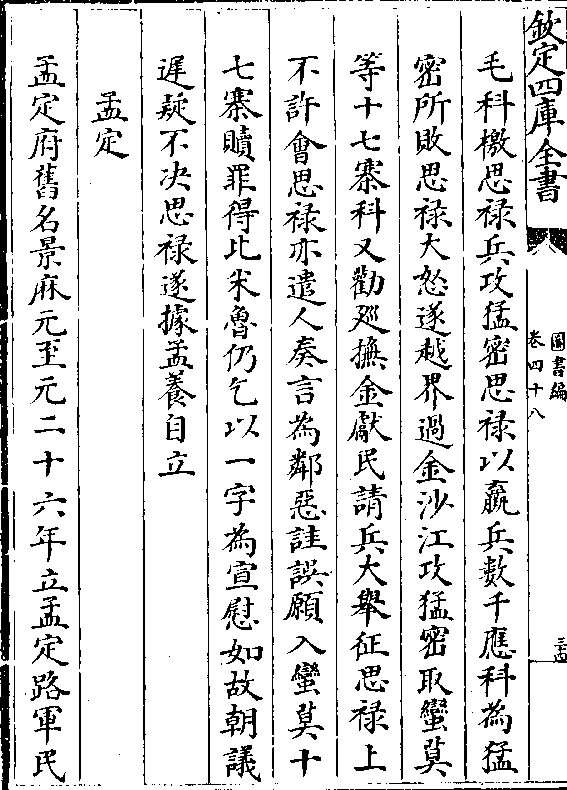 欽定四庫全書
圖書編
卷四十八
三古
毛科檄思禄兵攻猛密思禄以羸兵數千應科為猛
密所敗思禄大怒遂越界過金沙江攻猛密取蠻莫
等十七寨科又勸廵撫金獻民請兵大舉征思禄上
不許會思禄亦遣人奏言為鄰惡詿誤願入蠻莫十
七寨贖罪得比米魯仍乞以一字為宣慰如故朝議
遲疑不决思禄遂據孟養自立
孟定
孟定府舊名景麻元至元二十六年立孟定路軍民